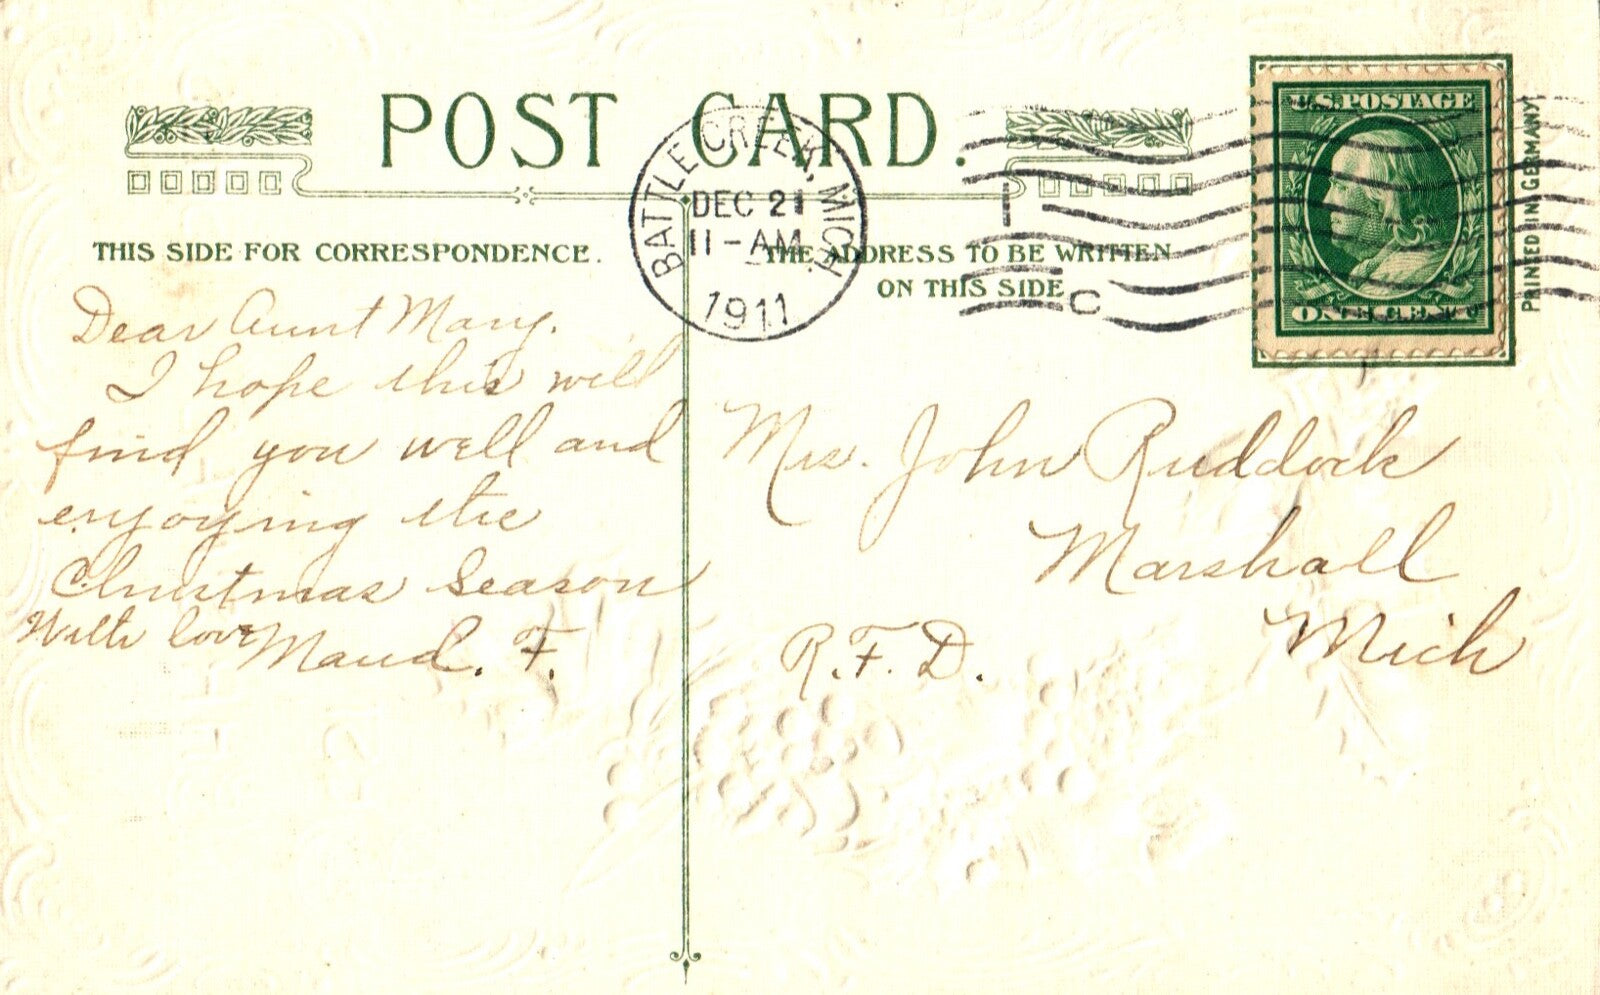 POST CARD.
THIS SIDE FOR CORRESPONDENCE.
THE ADDRESS TO BE WRITTEN
ON THIS SIDE
BATTLE CREEK, MICH.
DEC 21
11-AM
1911
1
C
U.S. POSTAGE
ONE CENT
PRINTED IN GERMANY
Dear Aunt Mary.
I hope this will
find you well and
enjoying the
Christmas Season
With love Maud. F.
Mrs. John Ruddock
Marshall
Mich
R.F.D.